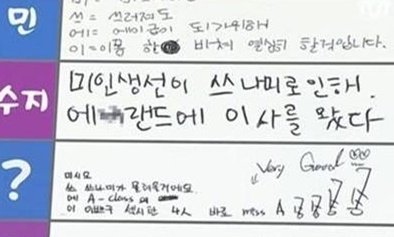 민
쓰 = 쓰러져도
에 = 에이급이 되기위해
이 = 이몸 한 바쳐 열심히 할겁니다.
수지
미인생선이 쓰나미로 인해
에 랜드에 이사를 왔다
?
Very Good
미시요
쓰 쓰나미가 몰려올거에요.
에 A-class
이 이빠구 섹시한 4人 바로 miss A